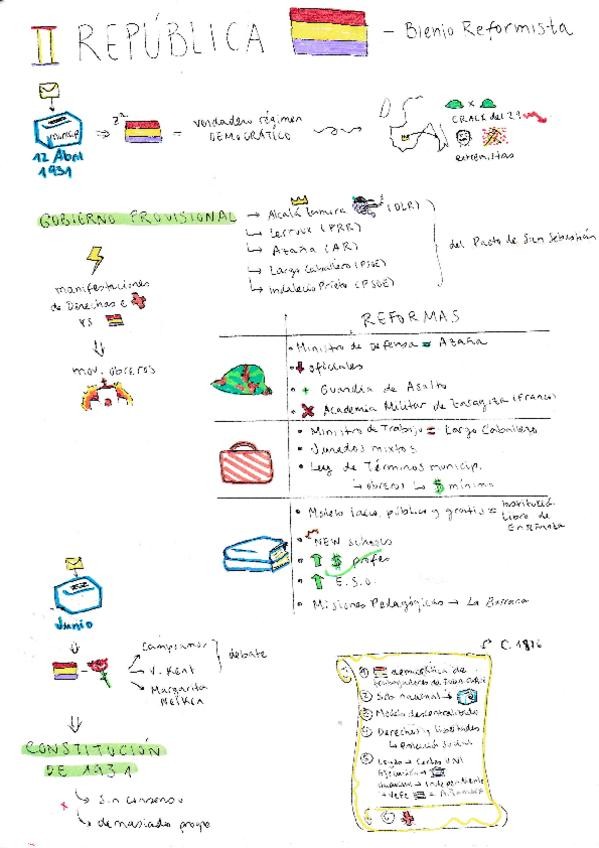 II REPÚBLICA - Bienio Reformista
municip.
12 Abril
1931
2ª
= verdadero régimen
DEMOCRÁTICO
x
CRACK del 29
extremistas
GOBIERNO PROVISIONAL
→ Alcalá Zamora (DLR)
↳ Lerroux (PRR)
↳ Azaña (AR)
↳ Largo Caballero (PSOE)
↳ Indalecio Prieto (PSOE)
del Pacto de San Sebastián
manifestaciones
de Derechas e
vs
mov. obreros
REFORMAS
• Ministro de Defensa = Azaña
• oficiales
• + Guardia de Asalto
• Academia Militar de Zaragoza (Franco)
• Ministro de Trabajo = Largo Caballero
• Jurados mixtos
• Ley de Términos municip.
↳ obreros ↳ $ mínimo
• Modelo laico, público y gratis = Institución
Libre de
Enseñanza
• NEW schools
• ↑ $ profes
• ↑ E.S.O.
• Misiones Pedagógicas → La Barraca
Junio
Campoamor
V. Kent
Margarita
Nelken
debate
CONSTITUCIÓN
DE 1931
↳ Sin consenso
↳ demasiado progre
① democrática de
trabajadores de toda clase
② Sob. nacional →
③ Modelo descentralizado
④ Derechos y libertades
⑤
⑥